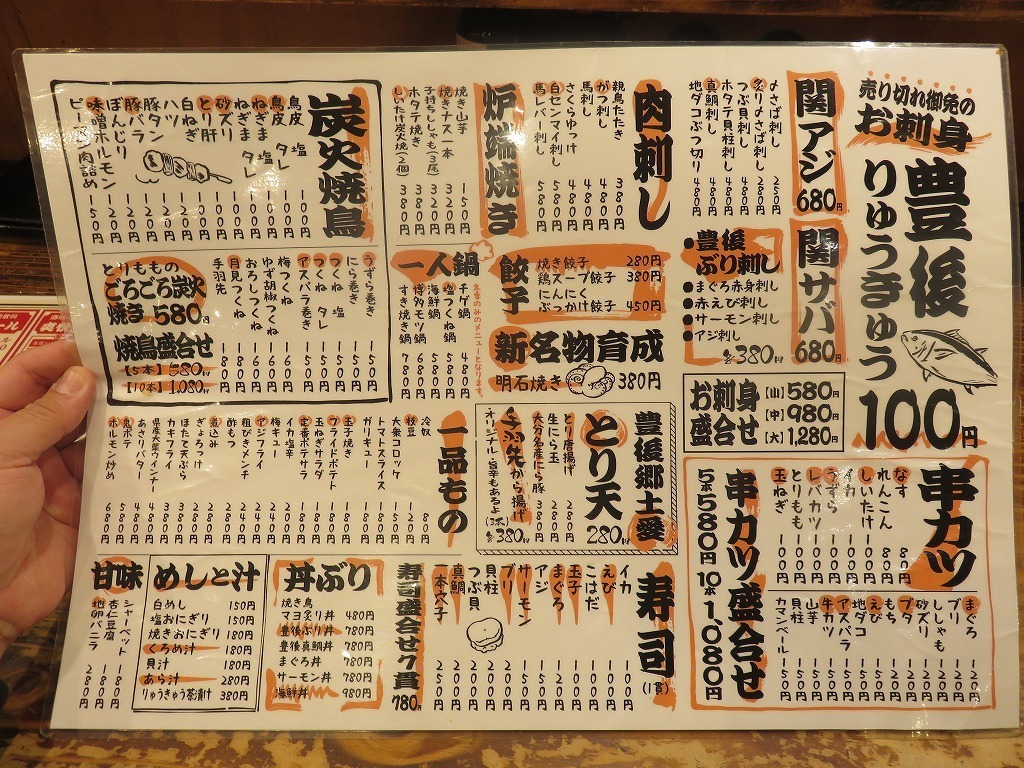 売り切れ御免の
お刺身
豊後
りゅうきゅう
100円
関アジ
680円
関サバ
680円
〆さば刺し 250円
炙り〆さば刺し 280円
つぶ貝刺し 480円
ホタテ貝柱刺し 480円
真鯛刺し 480円
地ダコぶつ切り 480円
●豊後
ぶり刺し
●まぐろ赤身刺し
●赤えび刺し
●サーモン刺し
●アジ刺し
各380円
お刺身
盛合せ
【山】580円
【中】980円
【大】1,280円
肉刺し
親鳥たたき 380円
がつ刺し 480円
馬刺し 480円
さくらゆっけ 480円
白センマイ刺し 580円
馬レバー刺し 580円
炉端焼き
焼き山芋 150円
焼きナス一本 320円
子持ちししゃも(3尾) 320円
ホタテ焼き 380円
しいたけ炭火焼(2個) 380円
炭火焼鳥
鳥皮 タレ 100円
鳥皮 塩 100円
ねぎま タレ 100円
ねぎま 塩 100円
砂ズリ
とり肝
白ねぎ
ハツ
豚バラ
豚タン
ぼんじり
味噌ホルモン
ピーマン肉詰め 150円
うずら巻き 150円
にら巻き 150円
つくね 塩 150円
つくね タレ 150円
アスパラ巻き
梅つくね
ゆず胡椒つくね
おろしつくね
月見つくね 180円
手羽先 180円
とりももの
ごろごろ炭火
焼き580円
焼鳥盛合せ
【5本】580円
【10本】1,080円
一人鍋
冬季のみのメニューとなります。
チゲ鍋 480円
塩つくね鍋 580円
海鮮鍋 680円
博多モツ鍋 680円
すき焼き鍋 780円
餃子
焼き餃子 280円
鶏スープ餃子 380円
にんにく
ぶっかけ餃子 450円
新名物育成
明石焼き 380円
豊後郷土愛
とり天
280円
とり唐揚げ 280円
生にら玉 280円
大分名産にら豚 380円
手羽先から揚げ
オリジナル・旨辛もあるよ(3本)
各380円
一品もの
冷奴 80円
枝豆 120円
大葉コロッケ 150円
トマトスライス 180円
ガリキュー 180円
玉子焼き 180円
フライドポテト 180円
玉ねぎサラダ 180円
定番ポテサラ
イカ塩辛
梅キュー
アジフライ
粗びきメンチ
酢もつ
煮込み
ぎょろっけ
ほたて天ぷら
カキフライ
県産大葉ウインナー
あさりバター
鬼ポテ
ホルモン炒め 680円
串カツ
なす 80円
れんこん 80円
しいたけ 100円
イカ 100円
うずら 100円
レバカツ 100円
とりもも 100円
玉ねぎ 100円
まぐろ
ブリ
ししゃも
砂ズリ
ブタ
もち
えび
地ダコ
アスパラ
牛カツ
山芋
貝柱
カマンベール
串カツ盛合せ
5本580円 10本1,080円
寿司
(1貫)
イカ 100円
えび 100円
こはだ 100円
玉子 100円
まぐろ
アジ
ブリ
サーモン
貝柱
つぶ貝
真鯛
一本穴子 250円
寿司盛合せ7貫
780円
丼ぶり
焼き鳥
マヨ炙り丼 480円
豊後ぶり丼 780円
豊後真鯛丼 780円
まぐろ丼 780円
サーモン丼 780円
海鮮丼 980円
めしと汁
白めし 150円
塩おにぎり 150円
焼きおにぎり 180円
くろめ汁 180円
貝汁 180円
あら汁 280円
りゅうきゅう茶漬け 380円
甘味
シャーベット 180円
杏仁豆腐 180円
地卵バニラ 280円